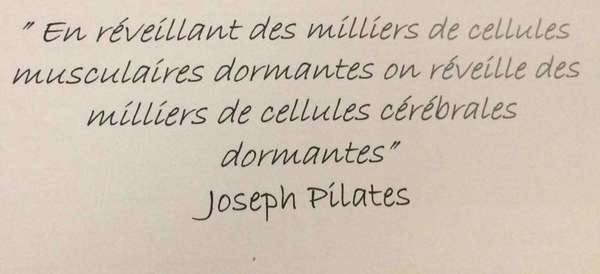 " En réveillant des milliers de cellules
musculaires dormantes on réveille des
milliers de cellules cérébrales
dormantes"
Joseph Pilates